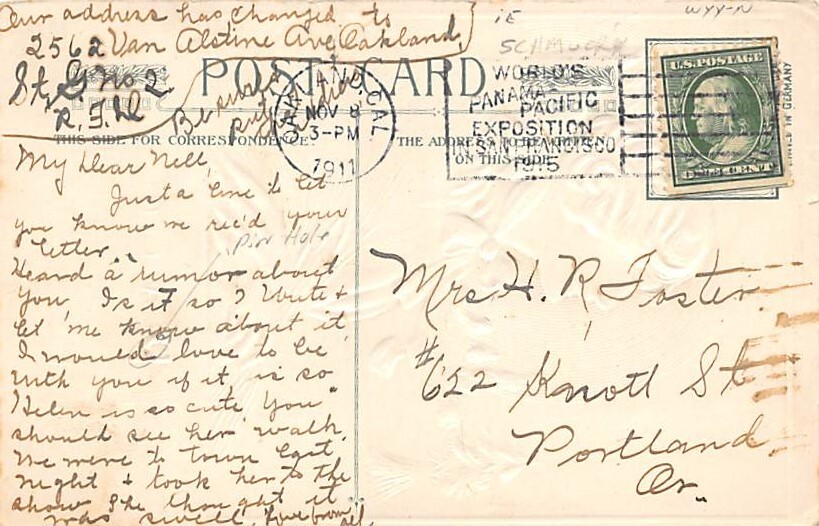 Our address has changed to
2562 Van Alstine Ave, Oakland,
St, G No 2
R. F. D
Be sure
put
POST CARD
THIS SIDE FOR CORRESPONDENCE.
My Dear Nell,
Just a line to let
you know we rec'd your
letter.
Pin Hole
Heard a rumor about
you. Is it so? Write &
let me know about it
I would love to be
with you if it is so
Helen is so cute You
should see her walk.
We were to town last
night & took her to the
show She thought it
was swell, Love from all,
OAKLAND, CAL.
NOV 8
3-PM
1911
iE
SCHMUCK
WYY-N
WORLD'S
PANAMA PACIFIC
EXPOSITION
IN SAN FRANCISCO
1915
THE ADDRESS TO BE WRITTEN
ON THIS SIDE
U.S. POSTAGE
ONE CENT
IN GERMANY
Mrs. H. R. Foster
#622 Knott St
Portland
Or.